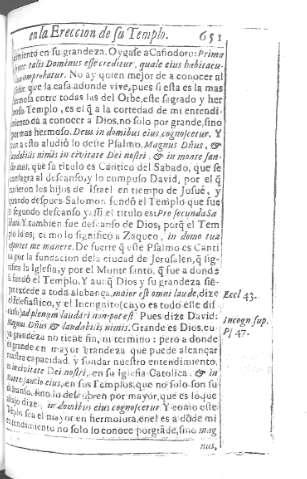 en la Ereccion de su Templo. 651
en su grandeza. Oygase a Casiodoro: Prima
talis Dominus esse creditur, quale eius habitacu-
No ay quien mejor de a conocer al
que la casa donde vive, pues si esta es la mas
entre todas las del Orbe, este sagrado y her
Templo, es el q̃ a la cortedad de mi entendi-
da a conocer a Dios, no solo por grande, sino
mas hermoso. Deus in domibus eius cognoscetur. Y
a esto aludiò lo deste Psalmo. Magnus Dñus, &
laudabilis nimis in civitate Dei nostri, & in monte san-
que su titulo es Cantico del Sabado, que se
al descanso, y lo compuso David, por el q̃
los hijos de Israel en tiempo de Josuè, y
despues Salomon fundò el Templo que fue
segundo descanso y el titulo es: Pro secunda Sa
Y tambien fue descanso de Dios, porq̃ el Tem
es; como lo significò a Zaqueo, in domo tua
oportet me manere. De suerte q̃ este Psalmo es Canti
por la fundacion de la ciudad de Jerusalen, q̃ sig-
nifica la Iglesia, y por el Monte santo, q̃ fue a donde
fundò el Templo. Y aunq̃ Dios y su grandeza sie-
a toda alabança, maior est omni laude, dize
Ecclesiastico, y el Incognito; cayo es todo este
ad plenum laudari non potest. Pues dize David:
Magnus Dñus & laudabilis nimis. Grande es Dios, cu
ya grandeza no tiene fin, ni termino: pero a donde
es grande en mayor grandeza que puede alcançar
nuestra capacidad, y sondar nuestro entendimiento,
in civitate Dei nostri, en su Iglesia Catolica, & in
monte sancto eius, en sus Templos, que no solo son su
descanso, sino lo descubren por mayor, que es lo que
abajo dize, in domibus eius cognoscetur. Y como este
Templo sea el mayor en hermosura, en el es a dõde mi
entendimiento no solo lo conoce por grãde, sino mag
nus,
Eccl 43.
Incogn. sup.
Ps 47.